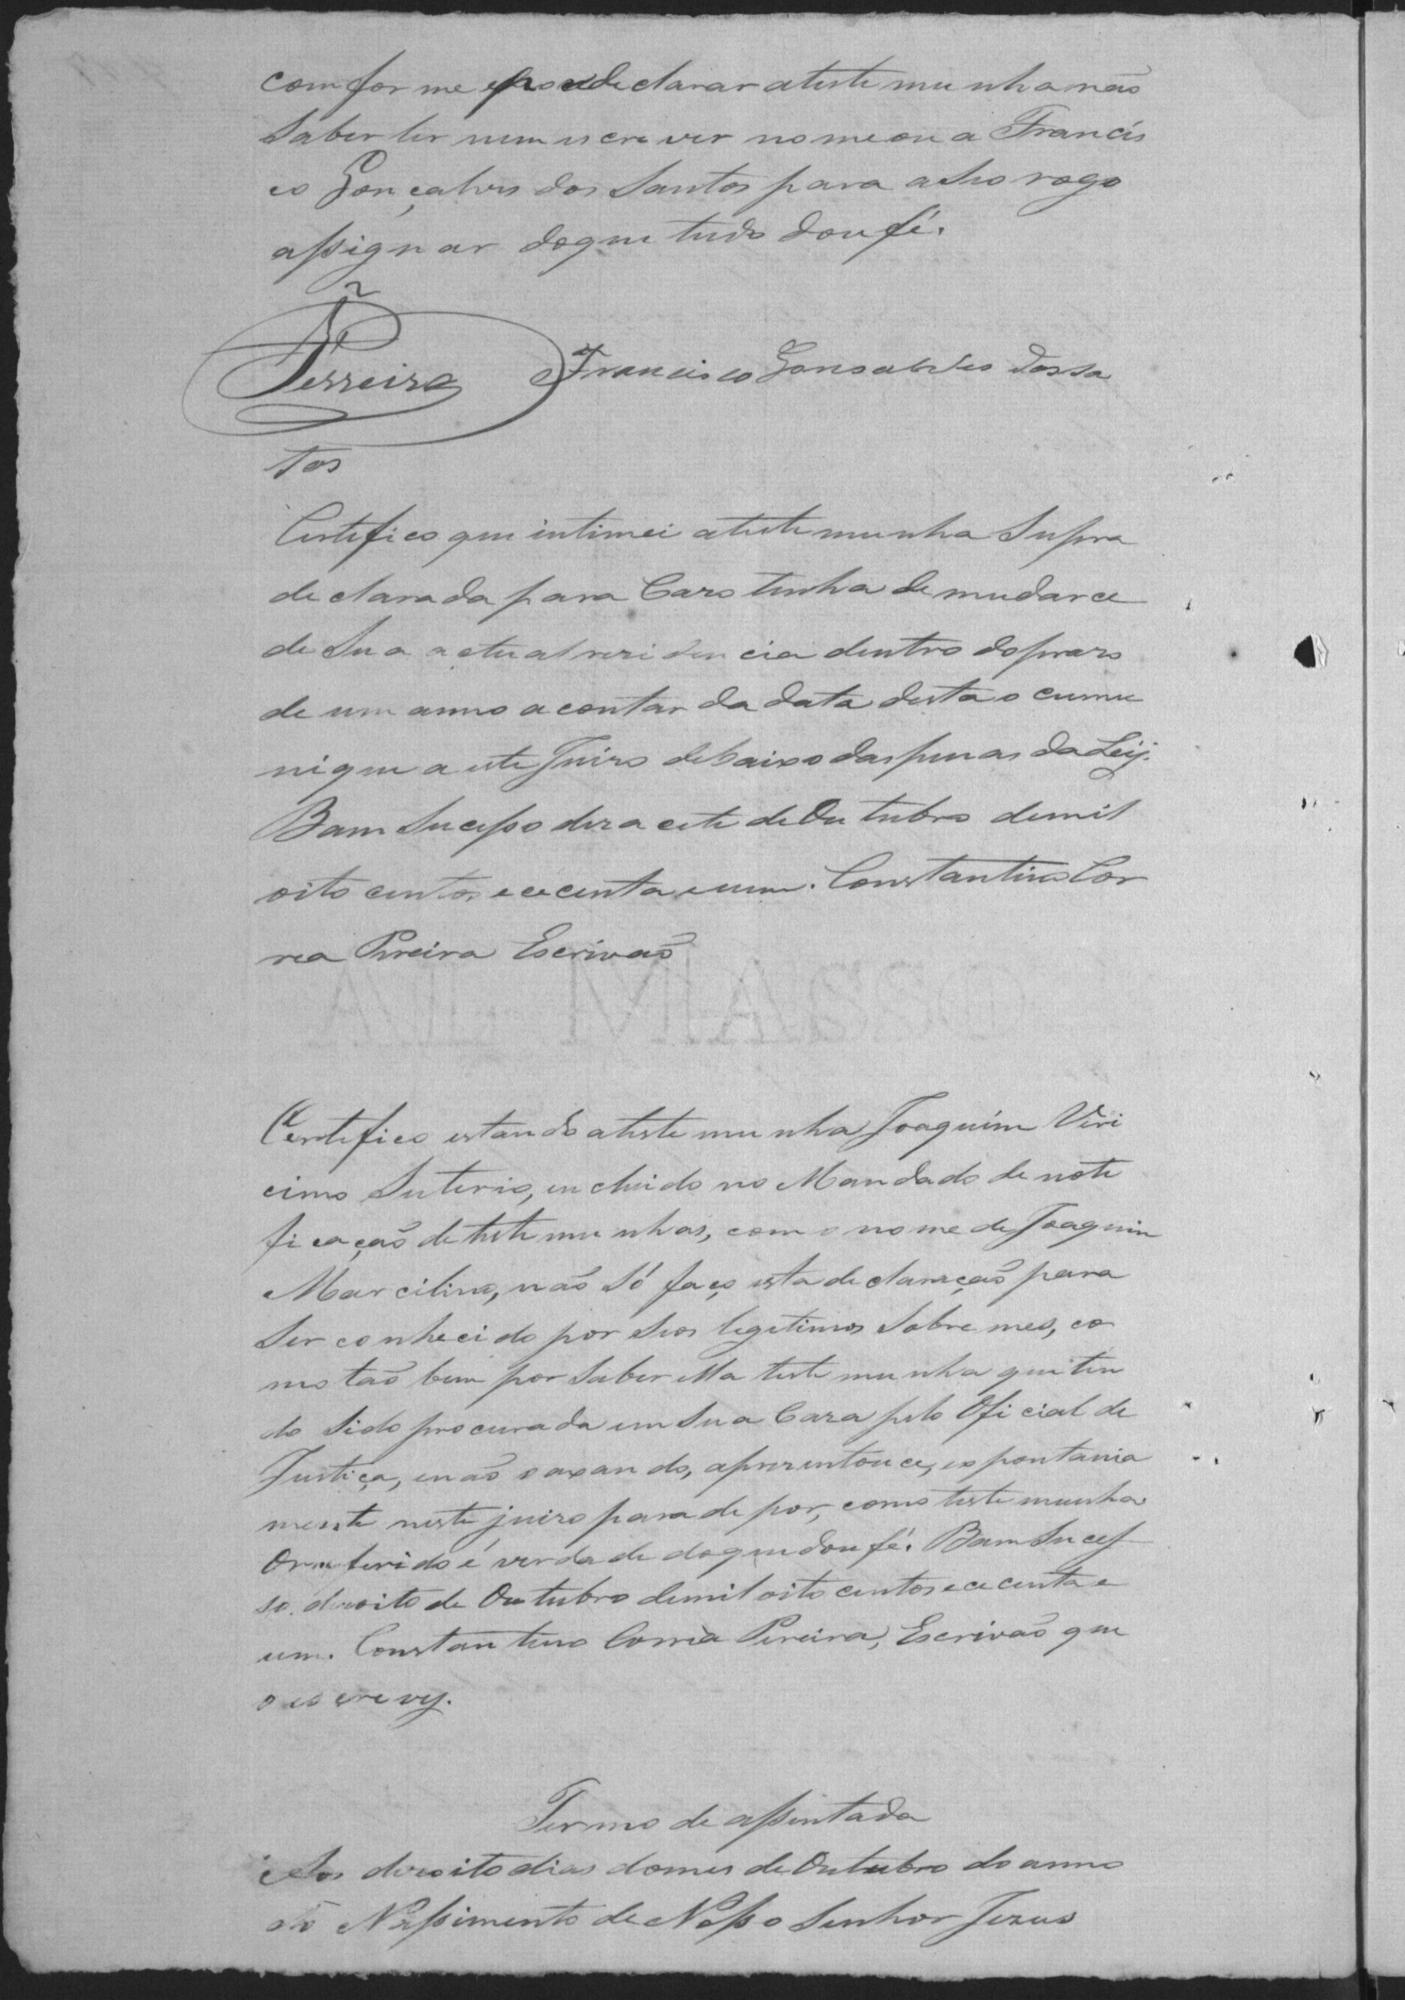 comforme e por declarar atestemunha não
Saber ler nem screver nomeou a Francis
co Gonçalves dos Santos para a Seo rogo
assignar doque tudo dou fé.
Ferreira Francisco Gonsalves dos Sa
tos
Certefico que intimei atestemunha Supra
declarada para Cazo tenha de mudarce
de Sua actual rezidencia dentro do prazo
de um anno a contar da data desta o cumu
nique a este Juizo debaixo das penas da Leij.
Bam Sucesso deza cete de Outubro de mil
oito centos e cecenta e um. Constantino Cor
rea Pereira Escrivão
AL MASSO
Certefico estando atestemunha Joaquim Viri
cimo Suterio, incluido no Mandado de note
ficação de testemunhas, com o nome de Joaquim
Marcilino, não Só faço esta declaração para
Ser conhecido por Seos legetimos Sobre mes, co
mo tão bem por Saber esta testemunha que ten
do Sido procurada em Sua Caza pelo Oficial de
Justiça, e não o axando, aprezentouce, espontania
mente neste juizo para depor, como testemunha
O referido é verdade doque dou fé. Bam Suces
so dezoito de Outubro de mil oito centos e cecenta e
um. Constantino Corrêa Pereira, Escrivão que
o escrevy.
Termo de assentada
Aos dezoito dias do mes de Outubro do anno
do Nassimento de Nosso Senhor Jezus